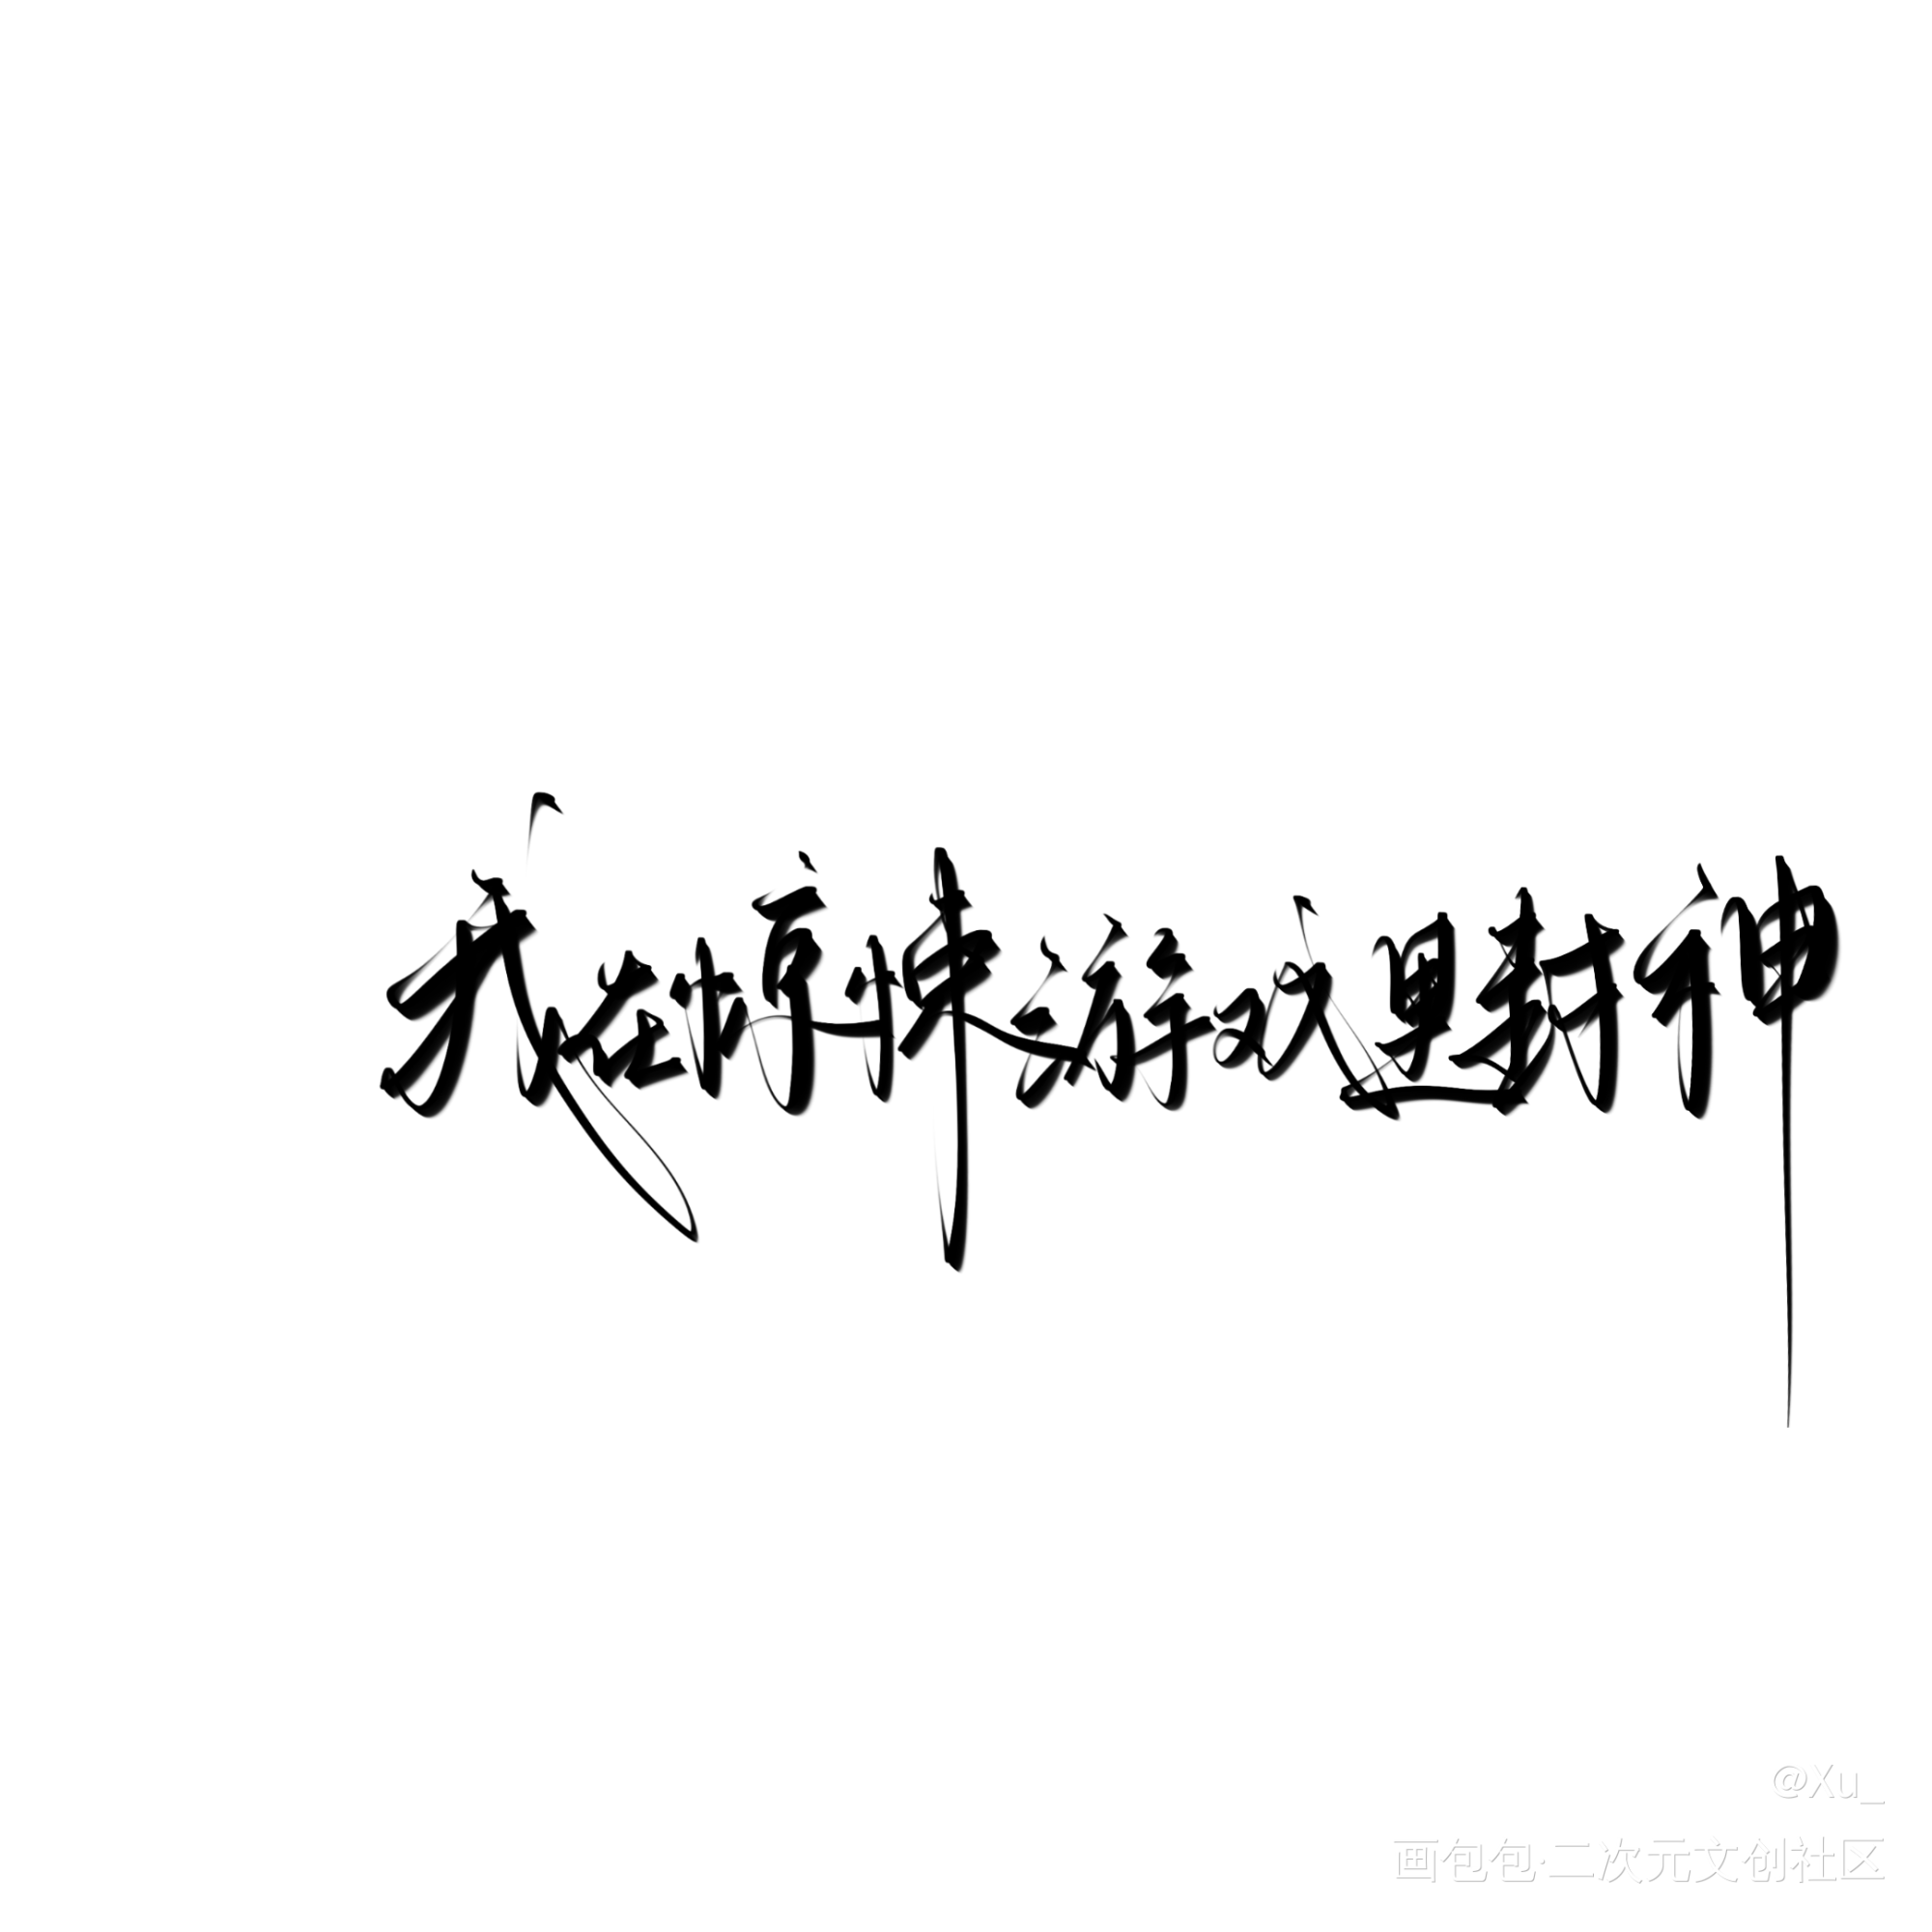 我在惊悚游戏里封神
@Xu_
画包包·二次元文创社区